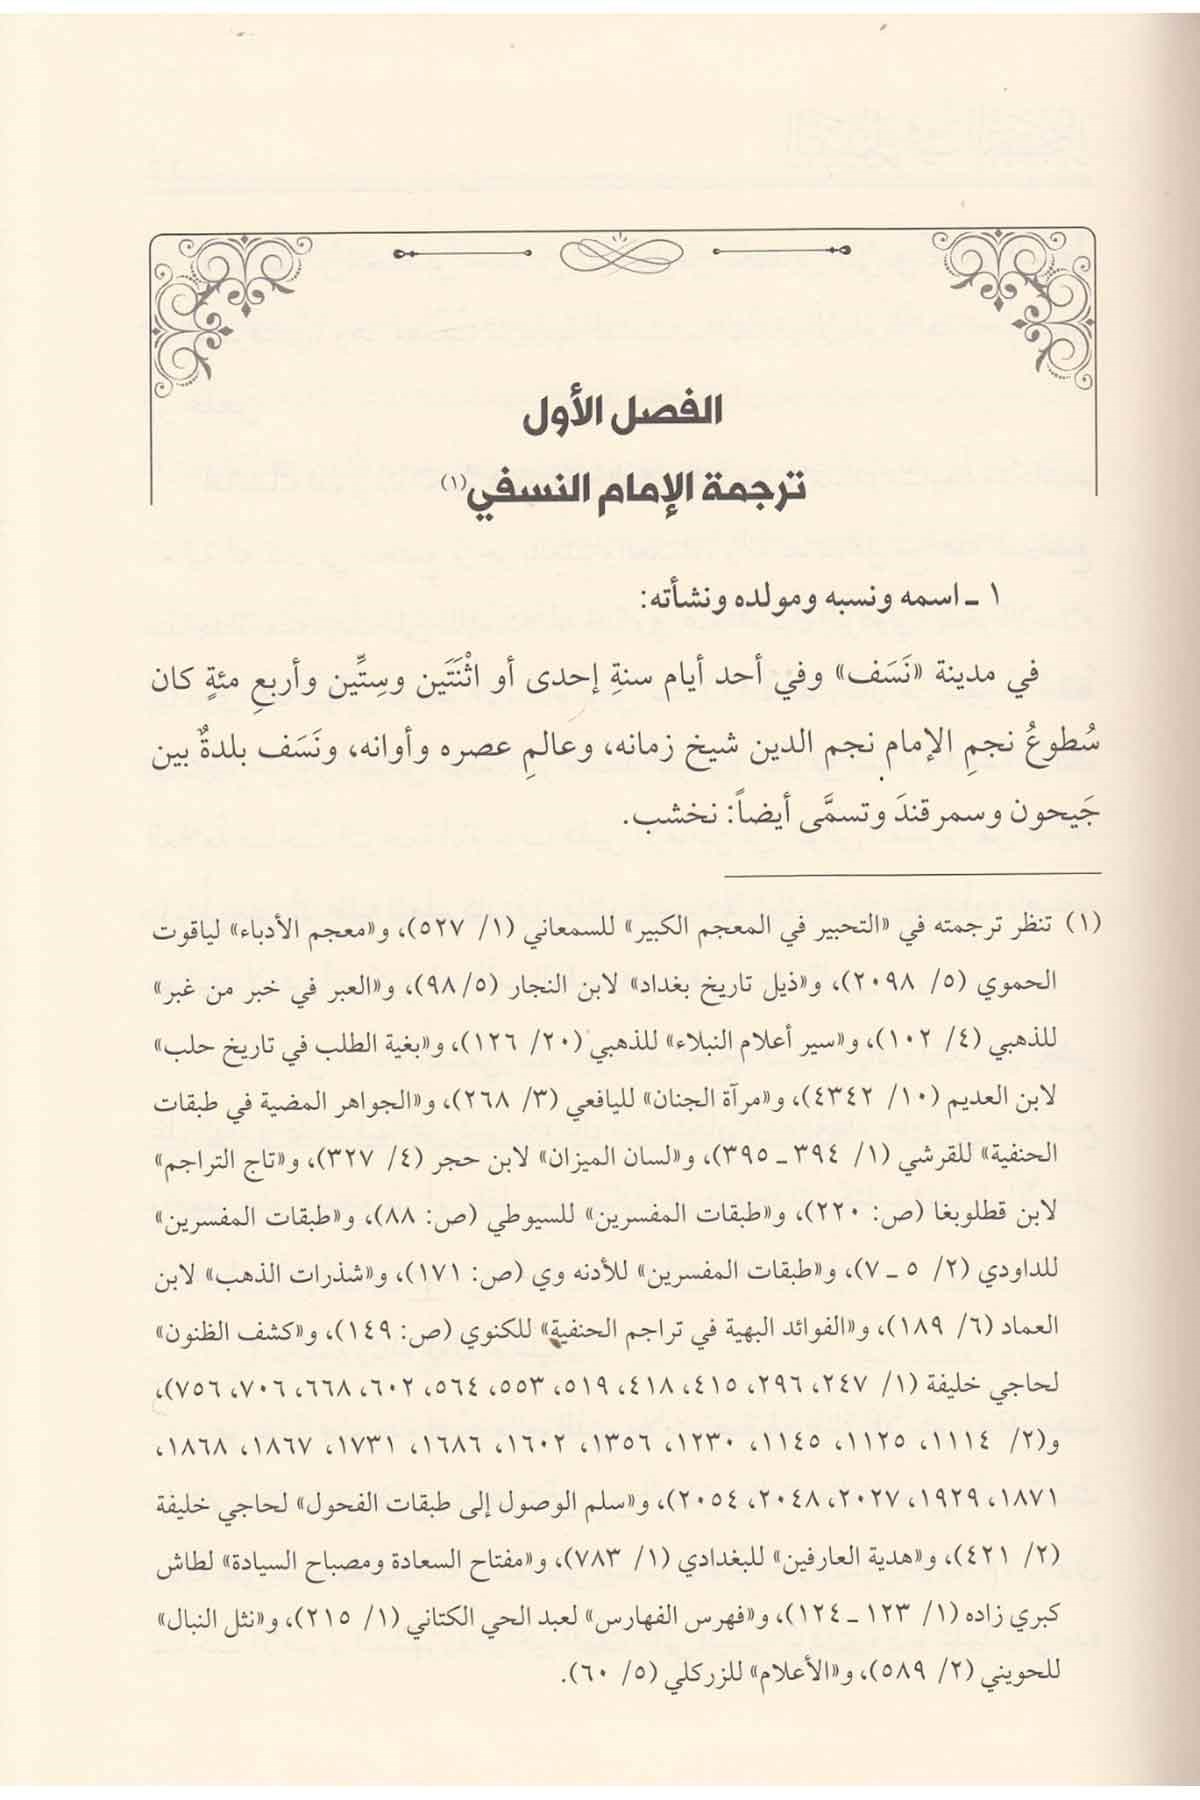 الفصل الأول
ترجمة الإمام النسفي(١)
١ ـ اسمه ونسبه ومولده ونشأته:
في مدينة «نَسَف» وفي أحد أيام سنةِ إحدى أو اثْنَتَين وسِتِّين وأربعِ مئةٍ كان
سُطوعُ نجمِ الإمام نجم الدين شيخ زمانه، وعالمِ عصره وأوانه، ونَسَف بلدةٌ بين
جَيحون وسمرقندَ وتسمَّى أيضاً: نخشب.
(١) تنظر ترجمته في «التحبير في المعجم الكبير» للسمعاني (١/ ٥٢٧)، و«معجم الأدباء» لياقوت
الحموي (٥/ ٢٠٩٨)، و«ذيل تاريخ بغداد» لابن النجار (٥/ ٩٨)، و«العبر في خبر من غبر»
للذهبي (٤/ ١٠٢)، و«سير أعلام النبلاء» للذهبي (٢٠/ ١٢٦)، و«بغية الطلب في تاريخ حلب»
لابن العديم (١٠/ ٤٣٤٢)، و«مرآة الجنان» لليافعي (٣/ ٢٦٨)، و«الجواهر المضية في طبقات
الحنفية» للقرشي (١/ ٣٩٤ ـ ٣٩٥)، و«لسان الميزان» لابن حجر (٤/ ٣٢٧)، و«تاج التراجم»
لابن قطلوبغا (ص: ٢٢٠)، و«طبقات المفسرين» للسيوطي (ص: ٨٨)، و«طبقات المفسرين»
للداودي (٢/ ٥ ـ ٧)، و«طبقات المفسرين» للأدنه وي (ص: ١٧١)، و«شذرات الذهب» لابن
العماد (٦/ ١٨٩)، و«الفوائد البهية في تراجم الحنفية» للكنوي (ص: ١٤٩)، و«كشف الظنون»
لحاجي خليفة (١/ ٢٤٧، ٢٩٦، ٤١٥، ٤١٨، ٥١٩، ٥٥٣، ٥٦٤، ٦٠٢، ٦٦٨، ٧٠٦، ٧٥٦)،
و(٢/ ١١١٤، ١١٢٥، ١١٤٥، ١٢٣٠، ١٣٥٦، ١٦٠٢، ١٦٨٦، ١٧٣١، ١٨٦٧، ١٨٦٨،
١٨٧١، ١٩٢٩، ٢٠٢٧، ٢٠٤٨، ٢٠٥٤)، و«سلم الوصول إلى طبقات الفحول» لحاجي خليفة
(٢/ ٤٢١)، و«هدية العارفين» للبغدادي (١/ ٧٨٣)، و«مفتاح السعادة ومصباح السيادة» لطاش
كبري زاده (١/ ١٢٣ ـ ١٢٤)، و«فهرس الفهارس» لعبد الحي الكتاني (١/ ٢١٥)، و«نثل النبال»
للحويني (٢/ ٥٨٩)، و«الأعلام» للزركلي (٥/ ٦٠).